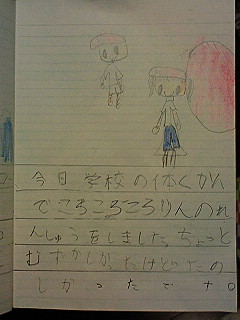 今日学校の体くかん
でころころころりんのれ
んしゅうをしました。ちょっと
むずかしかったけどたの
しかったです。